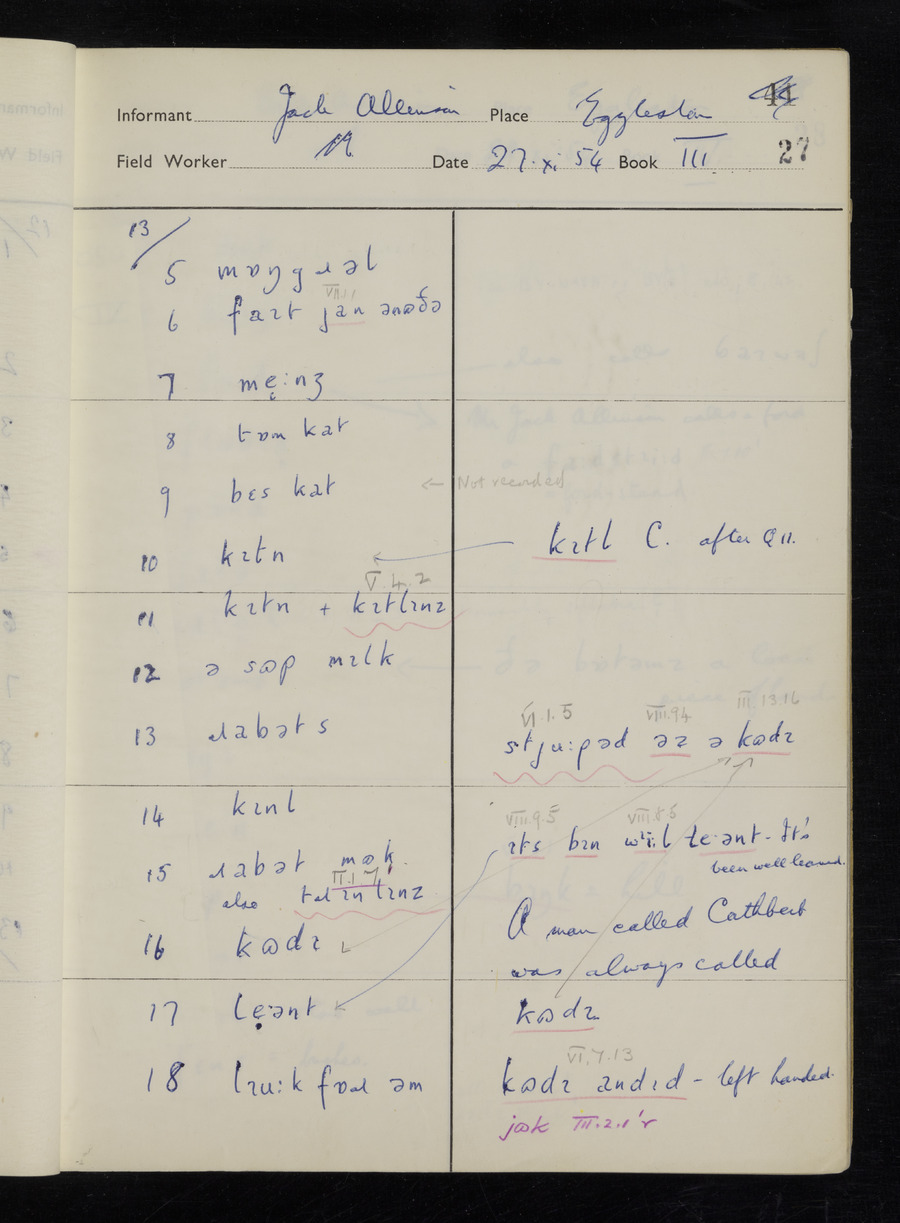 Informant Jack Allinson Place Eggleston 41
Field Worker Date 27. xi 54 Book III 27
13/
5 mɒŋgɹəl
6 faɪt jan ənɷðə
VII.1.1
7 mẹːnʒ
8 tɒm kat
9 bɛs kat
← Not recorded
10 kɪtn
kɪtl C. after Q 11.
V.4.2
11 kɪtn + kɪtlɪnz
12 ə sɷp mɪlk
13 ɹabəts
VI.1.5 VIII.9.4 III.13.16
stjuːpəd əz ə kɷdɪ
14 kɪnl
VIII.9.5 VIII.8.5
ɪts bɪn wiːl lẹənt - It's
been well learned.
15 ɹabət mɷk
II.1.7
also tɹɪnlɪnz
A man called Cathbert
16 kɷdɪ
was always called
17 lẹənt
kɷdɪ
VI.7.13
18 lɪuːk fɒɹ əm
kɷdɪ andɪd - left handed.
jɷk III.2.1'r